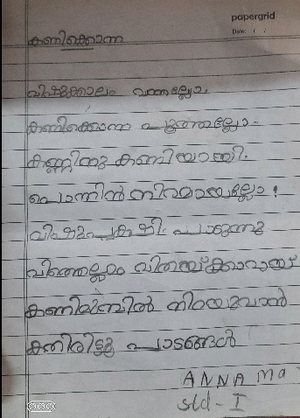 papergrid
Date: / /
കണിക്കൊന്ന
വിഷുക്കാലം വന്നല്ലോ.
കണിക്കൊന്ന പൂത്തല്ലോ.
കണ്ണിനു കണിയായി.
പൊന്നിൻ നിറമായല്ലോ!
വിഷുപക്ഷി പാടുന്നു
വിത്തെല്ലാം വിതയ്ക്കാറായ്
കണിയമ്പിൽ നിറയുവാൻ
കതിരിട്ടു പാടങ്ങൾ
ANNA Ma
Std - I